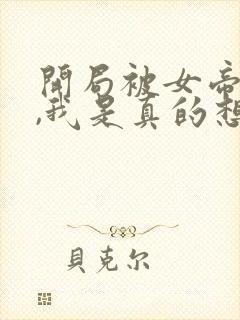 開局被女帝
,我是真的想
貝克尔